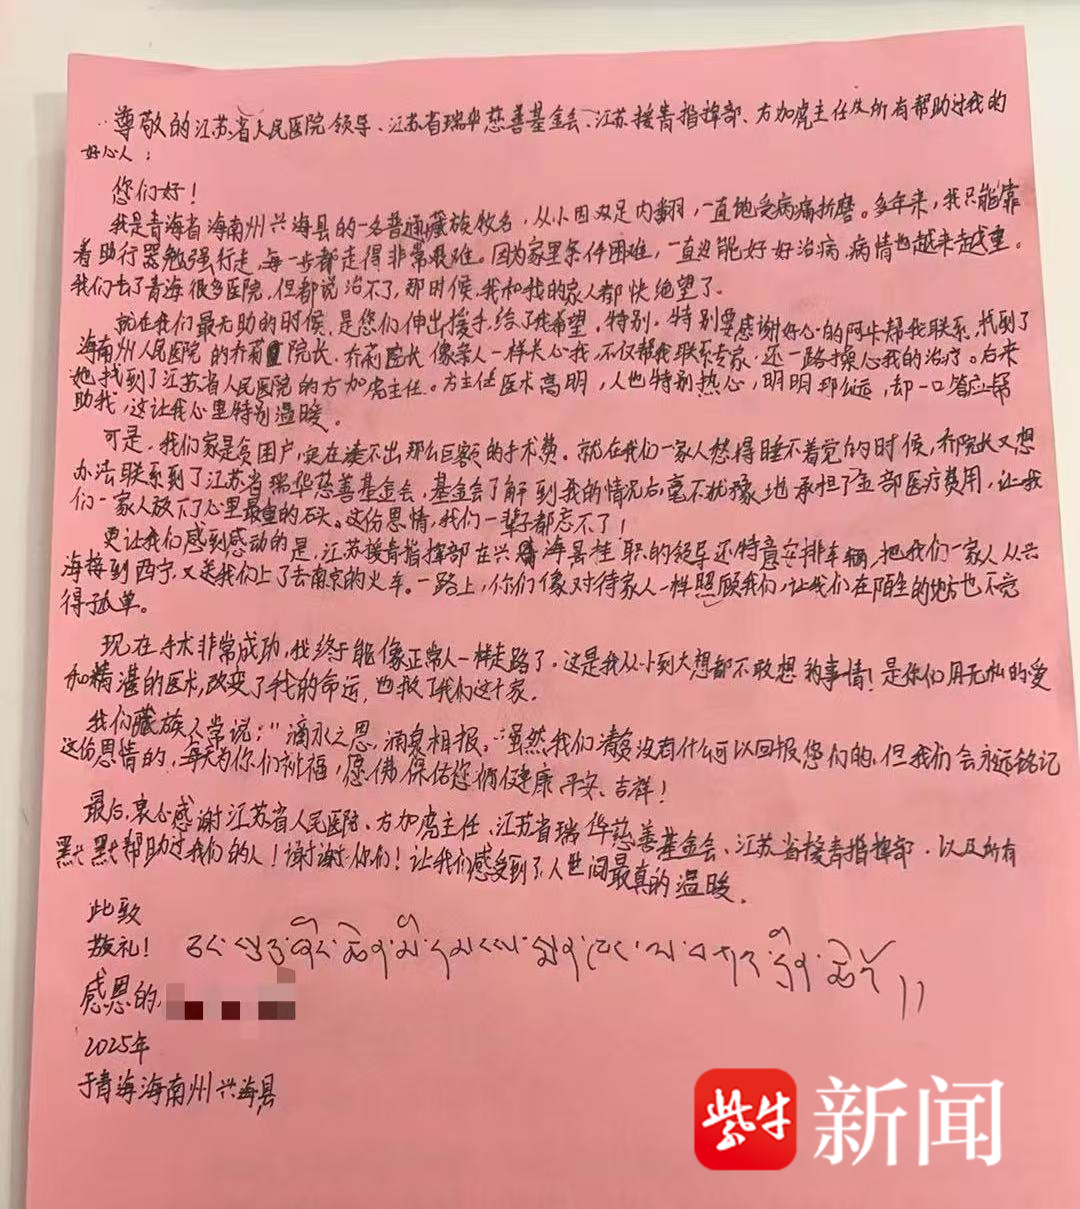 尊敬的江苏省人民医院领导、江苏省瑞华慈善基金会、江苏援青指挥部、方加虎主任及所有帮助过我的
好心人：
您们好！
我是青海省海南州兴海县的一名普通藏族牧名，从小因双足内翻，一直地受病痛折磨。多年来，我只能靠
着助行器勉强行走，每一步都走得非常艰难。因为家里条件困难，一直没能好好治病，病情也越来越重。
我们去了青海很多医院，但都说治不了，那时候，我和我的家人都快绝望了。
就在我们最无助的时候，是您们伸出援手，给了我希望，特别，特别要感谢好心的阿卡帮我联系，找到了
海南州人民医院的乔莉院长，乔莉院长像亲人一样关心我，不仅帮我联系专家，还一路操心我的治疗。后来
她找到了江苏省人民医院的方加虎主任。方主任医术高明，人也特别热心，明明那么远，却一口答应帮
助我，这让我心里特别温暖。
可是，我们家是贫困户，实在凑不出那么巨额的手术费。就在我们一家人愁得睡不着觉的时候，乔院长又想
办法联系到了江苏省瑞华慈善基金会，基金会了解到我的情况后，毫不犹豫地承担了全部医疗费用，让我
们一家人放下了心里最重的石头。这份恩情，我们一辈子都忘不了！
更让我们感到感动的是，江苏援青指挥部在兴海县挂职的领导还特意安排车辆，把我们一家人从兴
海接到西宁，又送我们上了去南京的火车。一路上，你们像对待家人一样照顾我们，让我们在陌生的地方也不觉
得孤单。
现在手术非常成功，我终于能像正常人一样走路了，这是我从小到大想都不敢想的事情！是你们用无私的爱
和精湛的医术，改变了我的命运，也救了我们这个家．
我们藏族人常说："滴水之恩，涌泉相报。"虽然我们清贫没有什么可以回报您们的，但我们会永远铭记
这份恩情的，每天为你们祈福，愿佛保佑您们健康、平安、吉祥！
最后，衷心感谢江苏省人民医院、方加虎主任、江苏省瑞华慈善基金会、江苏省援青指挥部，以及所有
默默帮助过我们的人！谢谢你们！让我们感受到了人世间最真的温暖．
此致
敬礼！
感恩的，
2025年
于青海海南州兴海县
紫牛新闻